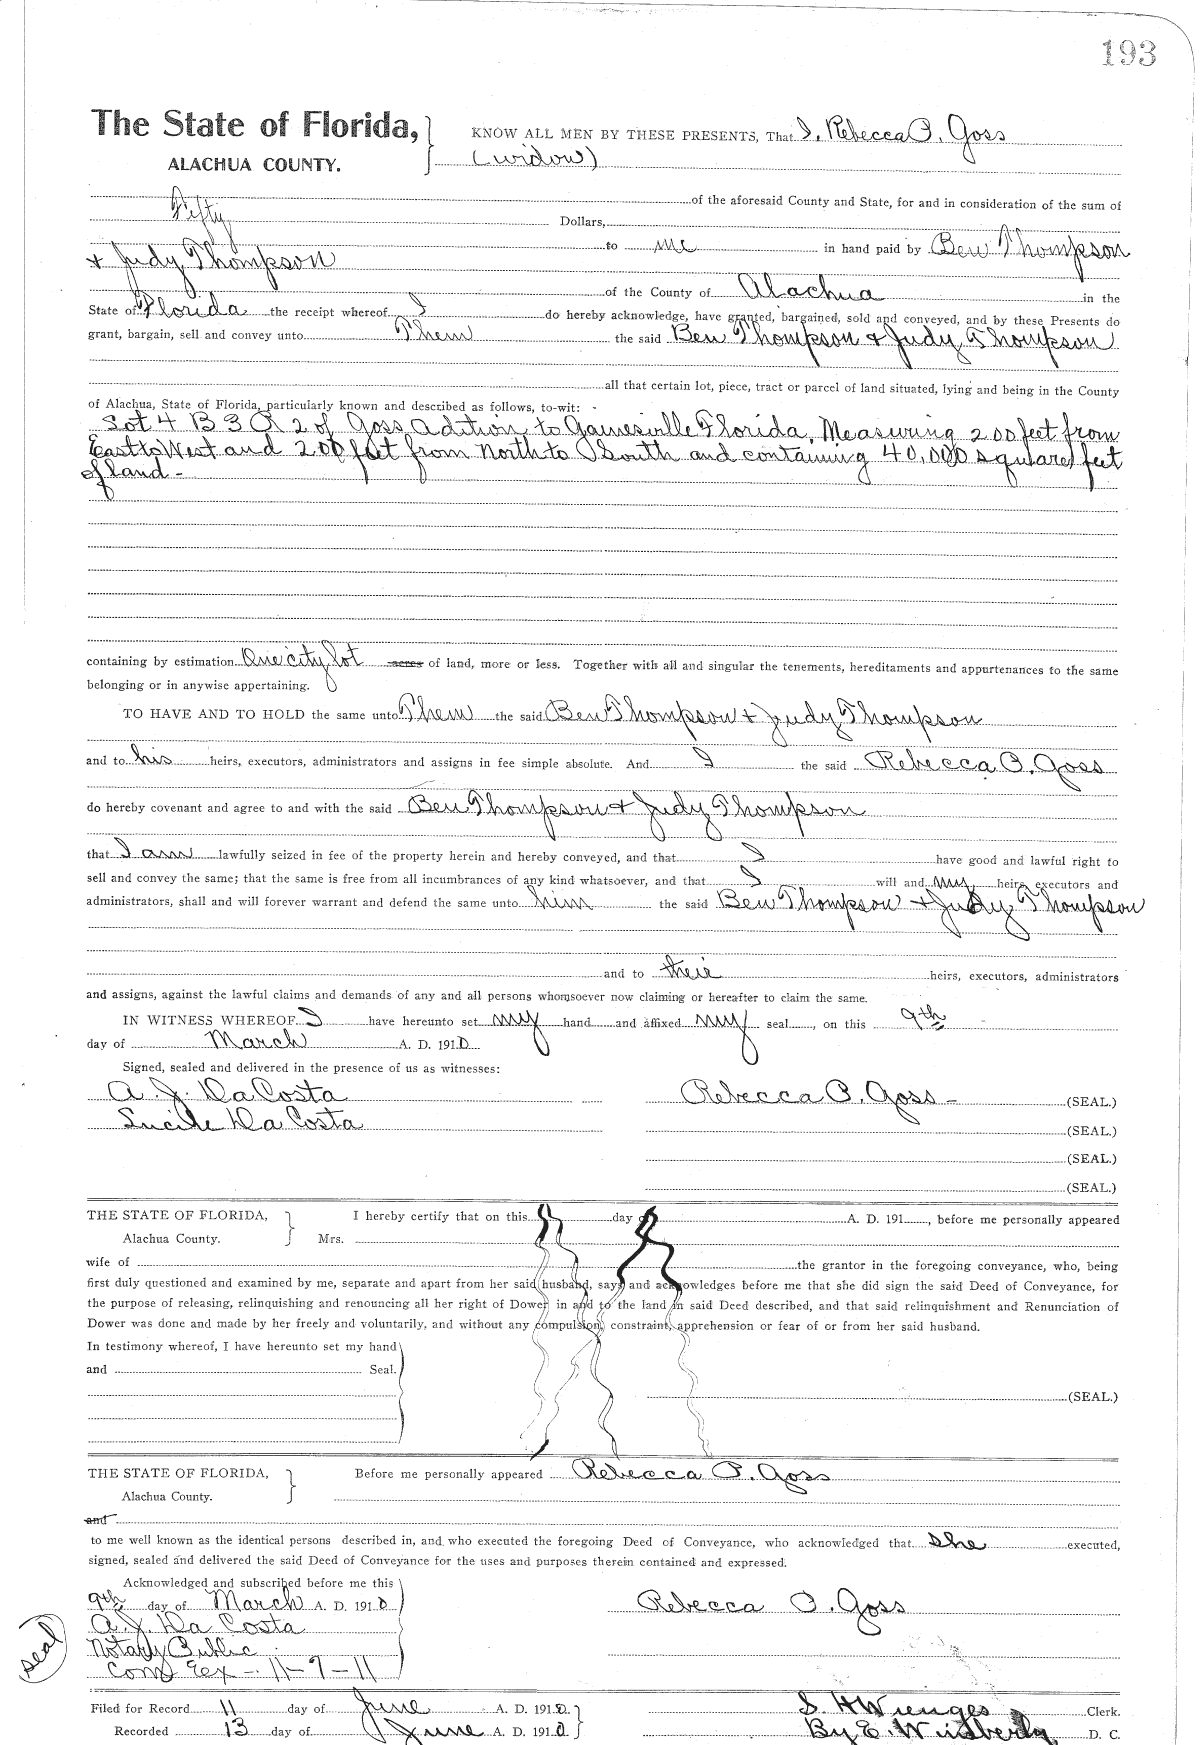 193
The State of Florida,
ALACHUA COUNTY.
KNOW ALL MEN BY THESE PRESENTS, That I, Rebecca P. Goss
(widow)
of the aforesaid County and State, for and in consideration of the sum of
Fifty Dollars,
to me in hand paid by Ben Thompson
+ Judy Thompson
of the County of Alachua in the
State of Florida the receipt whereof I do hereby acknowledge, have granted, bargained, sold and conveyed, and by these Presents do
grant, bargain, sell and convey unto Them the said Ben Thompson + Judy Thompson
all that certain lot, piece, tract or parcel of land situated, lying and being in the County
of Alachua, State of Florida, particularly known and described as follows, to-wit:
Lot 4 B 3 R 2 of Goss Adition to Gainesville Florida, Measuring 200 feet from
East to West and 200 feet from North to South and containing 40,000 square feet
of land -
containing by estimation One city lot acres of land, more or less. Together with all and singular the tenements, hereditaments and appurtenances to the same
belonging or in anywise appertaining.
TO HAVE AND TO HOLD the same unto Them the said Ben Thompson + Judy Thompson
and to his heirs, executors, administrators and assigns in fee simple absolute. And I the said Rebecca P. Goss
do hereby covenant and agree to and with the said Ben Thompson + Judy Thompson
that I am lawfully seized in fee of the property herein and hereby conveyed, and that I have good and lawful right to
sell and convey the same; that the same is free from all incumbrances of any kind whatsoever, and that I will and my heirs, executors and
administrators, shall and will forever warrant and defend the same unto him the said Ben Thompson + Judy Thompson
and to their heirs, executors, administrators
and assigns, against the lawful claims and demands of any and all persons whomsoever now claiming or hereafter to claim the same.
IN WITNESS WHEREOF I have hereunto set my hand and affixed my seal, on this 9th
day of March A. D. 1910
Signed, sealed and delivered in the presence of us as witnesses:
A. J. DaCosta Rebecca P. Goss - (SEAL.)
Lucile Da Costa (SEAL.)
(SEAL.)
(SEAL.)
THE STATE OF FLORIDA,
Alachua County.
I hereby certify that on this day of A. D. 191, before me personally appeared
Mrs.
wife of the grantor in the foregoing conveyance, who, being
first duly questioned and examined by me, separate and apart from her said husband, says and acknowledges before me that she did sign the said Deed of Conveyance, for
the purpose of releasing, relinquishing and renouncing all her right of Dower in and to the land in said Deed described, and that said relinquishment and Renunciation of
Dower was done and made by her freely and voluntarily, and without any compulsion, constraint, apprehension or fear of or from her said husband.
In testimony whereof, I have hereunto set my hand
and Seal.
(SEAL.)
THE STATE OF FLORIDA,
Alachua County.
Before me personally appeared Rebecca P. Goss
and
to me well known as the identical persons described in, and who executed the foregoing Deed of Conveyance, who acknowledged that she executed,
signed, sealed and delivered the said Deed of Conveyance for the uses and purposes therein contained and expressed.
Acknowledged and subscribed before me this
9th day of March A. D. 1910 Rebecca P. Goss
A. J. Da Costa
Notary Public
Com Ex - 11-7-11
seal
Filed for Record 11 day of June A. D. 1910. S. H Wienges Clerk.
Recorded 13 day of June A. D. 1910 By E. Wimberly D. C.